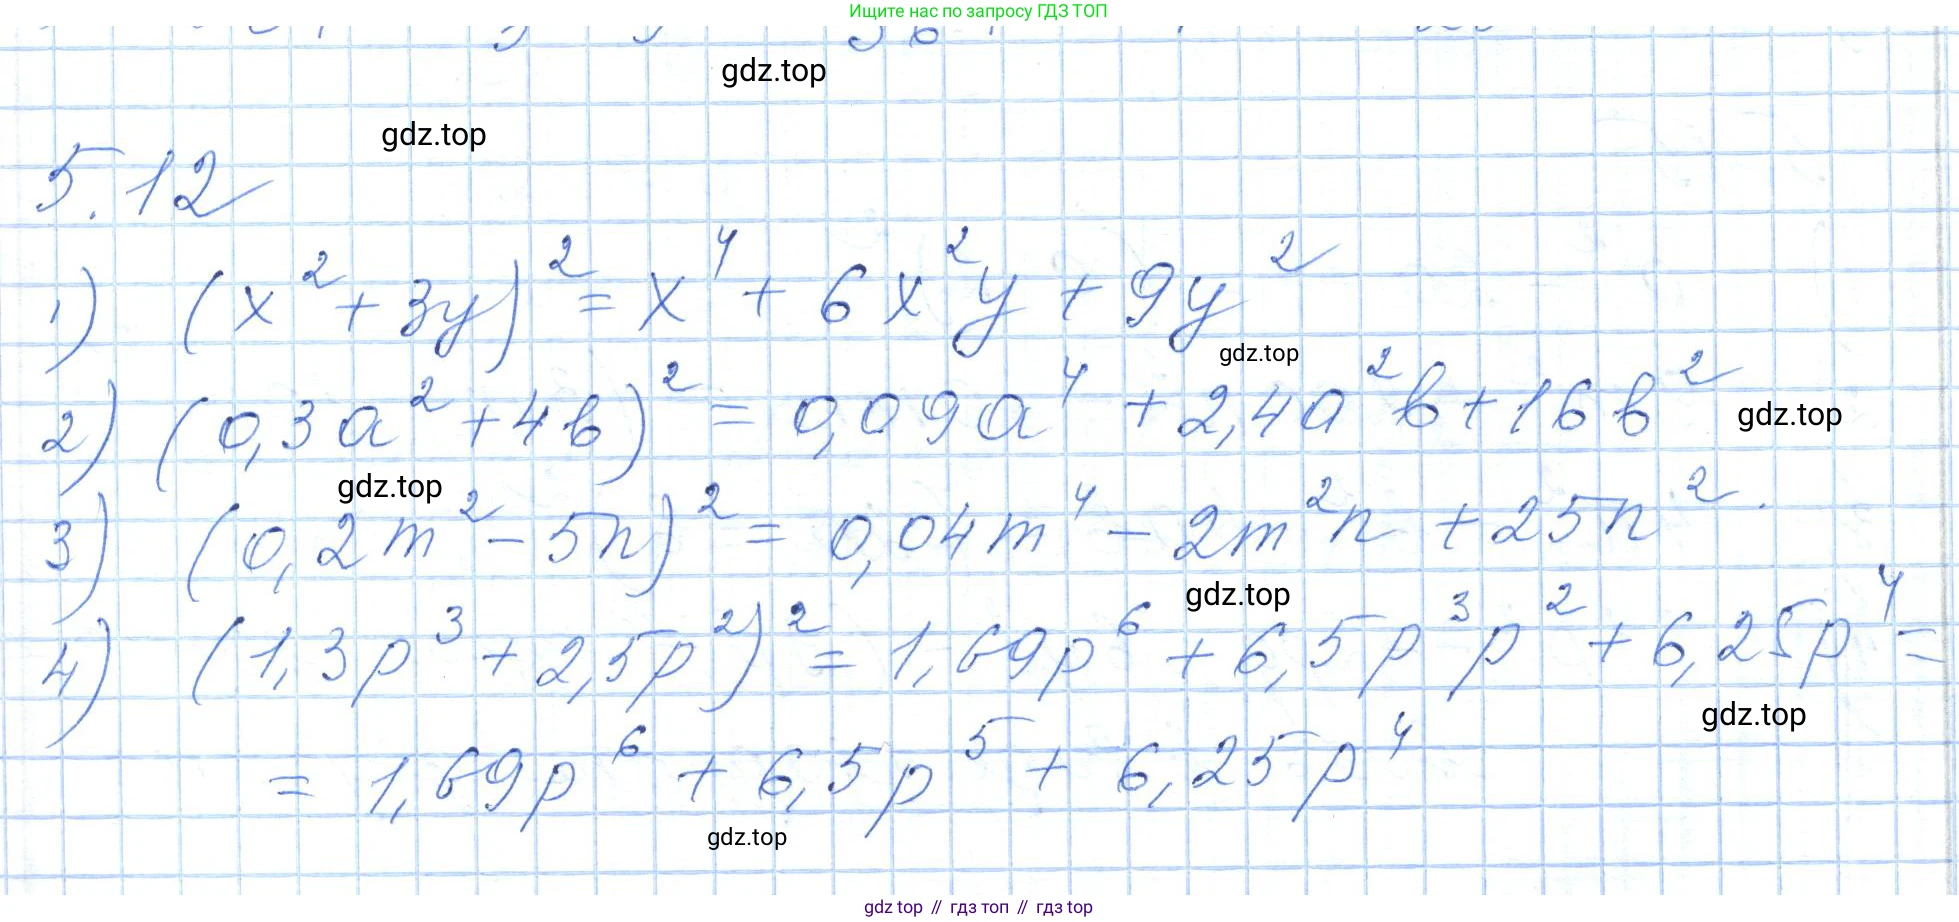 Ищите нас по запросу ГДЗ ТОП
gdz.top
gdz.top
5.12
1) (x² + 3y)² = x⁴ + 6x²y + 9y²
gdz.top
2) (0,3a² + 4b)² = 0,09a⁴ + 2,4a²b + 16b²
gdz.top
gdz.top
3) (0,2m² - 5n)² = 0,04m⁴ - 2m²n + 25n².
gdz.top
4) (1,3p³ + 2,5p²)² = 1,69p⁶ + 6,5p³p² + 6,25p⁴ =
gdz.top
= 1,69p⁶ + 6,5p⁵ + 6,25p⁴
gdz.top
gdz top // гдз топ // гдз top